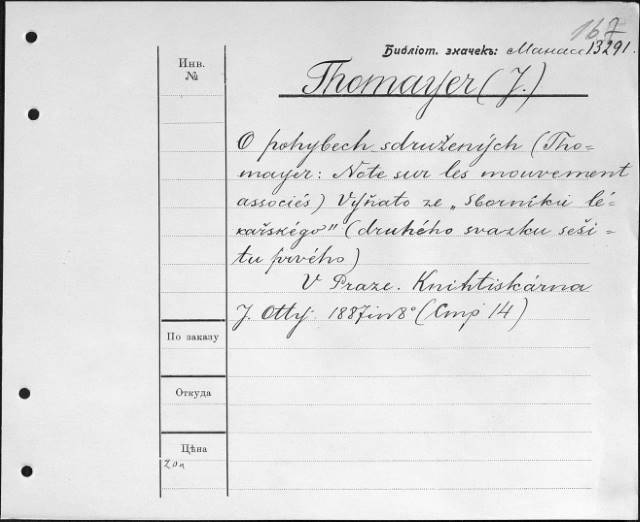 167
Библіот. значекъ: Манасс 13291.
Инв.
№
Thomayer (J.)
O pohybech sdružených (Tho=
mayer: Note sur les mouvement
associés) Vyňato ze „Sborníku lé-
kařského" (druhého svazku seši-
tu prvého)
V Praze. Knihtiskárna
J. Otty. 1887 in 8° (Cmp 14)
По заказу
Откуда
Цѣна
20к